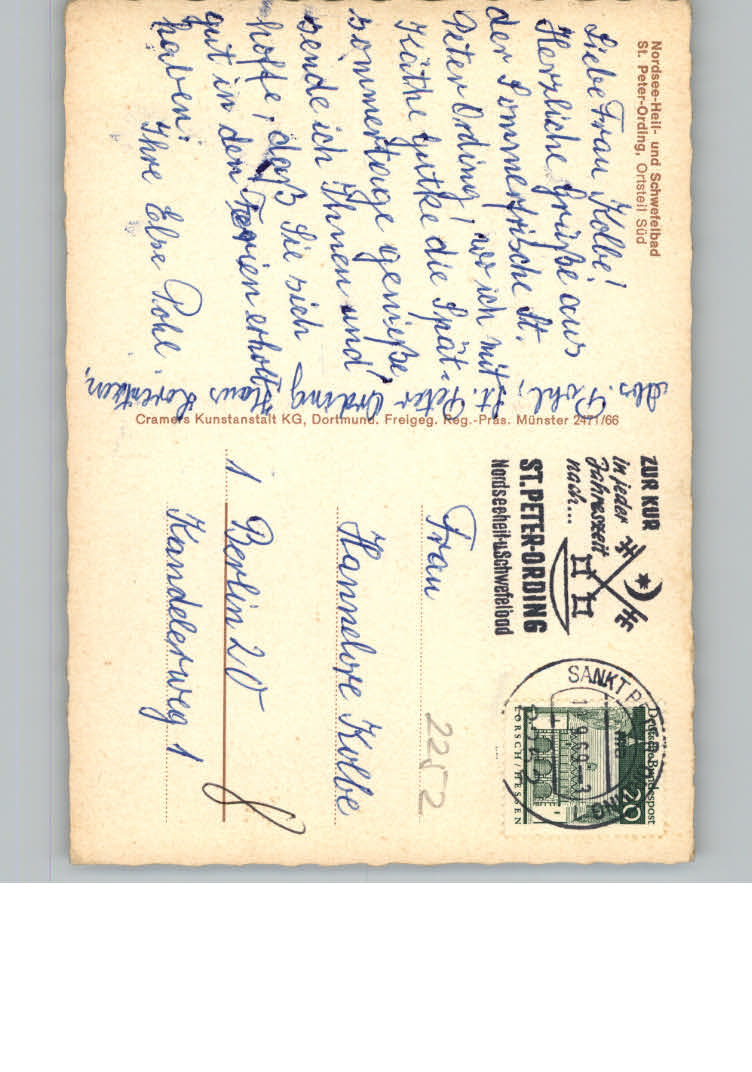 Nordsee-Heil- und Schwefelbad
St. Peter-Ording, Ortsteil Süd
Liebe Frau Kolbe!
Herzliche Grüße aus
der Sommerfrische St.
Peter Ording, wo ich mit
Käthe Gutke die Spät-
sommertage genieße,
sende ich Ihnen und
hoffe, daß Sie sich
gut in den Ferien erholt
haben.
Ihre Else Pohl.
Abs. Pohl, St. Peter Ording
Haus Lorentzen,
Cramers Kunstanstalt KG, Dortmund. Freigeg. Reg.-Präs. Münster 2471/66
ZUR KUR
in jeder
Jahreszeit
nach...
ST. PETER-ORDING
Nordseeheil-u.Schwefelbad
SANKT P
ORDING
9.69
Deutsche Bundespost
20
LORSCH / HESSEN
Frau
Hannelore Kolbe
1 Berlin 20
Kandelerweg 1
2252
8